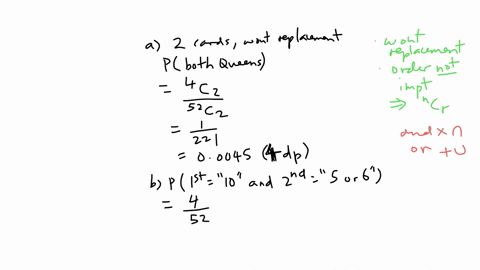 a) 2 cards, wout replacement
P(both Queens)
= ⁴C₂
⁵²C₂
= 1
221
= 0.0045 (4dp)
b) P(1st = "10" and 2nd = "5 or 6")
= 4
52
· wout
replacement
· order not
impt
⇒ ⁿCᵣ
and × ∩
or + ∪